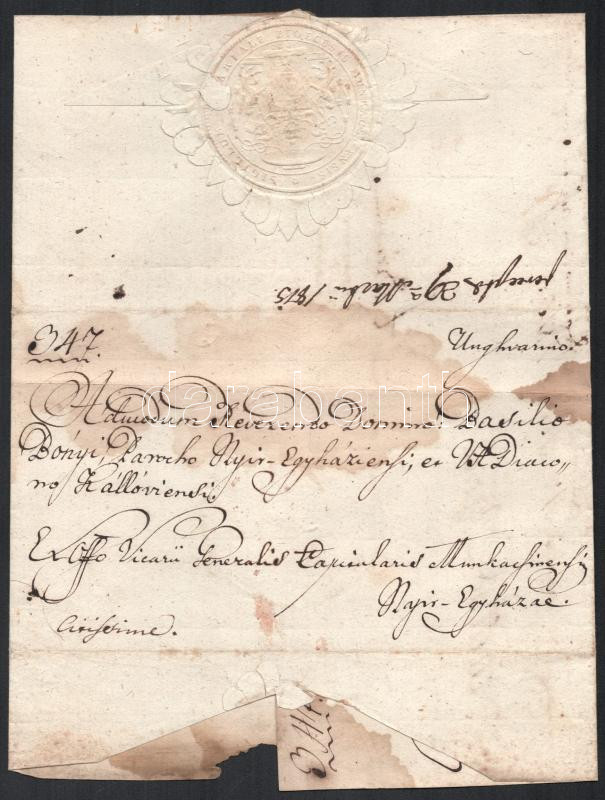 percepta 29ª Martii 1815.
347
Unghvarino.
Admodum Reverendo Domino Basilio
Dónyi, Parocho Nyir-Egyháziensi, et V A Diaco,,
no Kállóviensi.
Ex Offo Vicarii Generalis Capitularis Munkacsinensis
Nyir-Egyházae.
Citissime.
darabanth